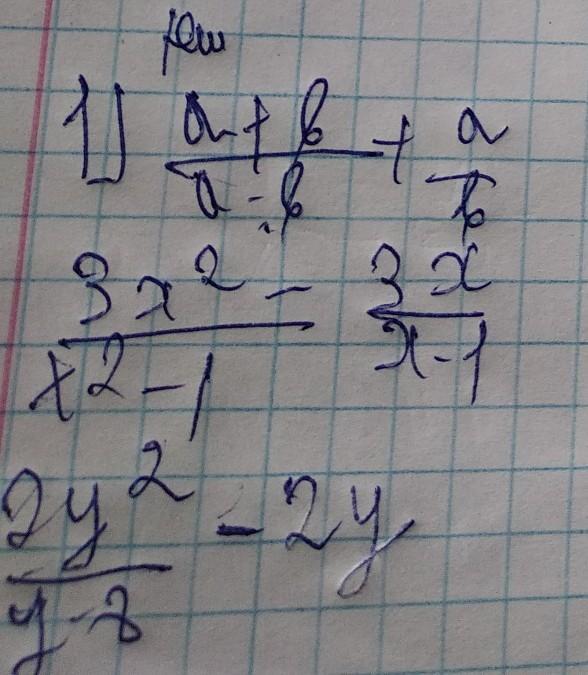 реш
1) (a + b)/(a - b) + a/b
3x² / (x² - 1) - 3x / (x - 1)
2y² / (y - z) - 2y